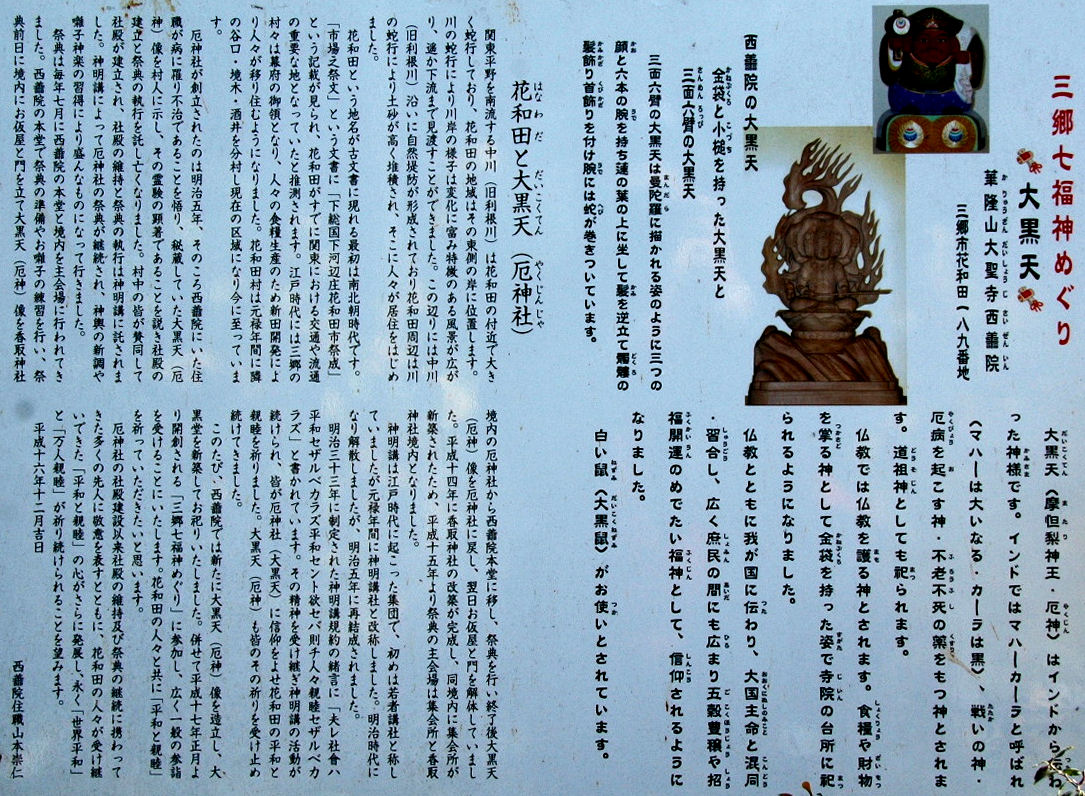 三郷七福神めぐり
大黒天
華隆山大聖寺西善院
三郷市花和田一八九番地
大黒天（摩怛梨神王・厄神）はインドから伝わ
った神様です。インドではマハーカーラと呼ばれ
（マハーは大いなる・カーラは黒）、戦いの神・
厄病を起こす神・不老不死の薬をもつ神とされま
す。道祖神としても祀られます。
仏教では仏教を護る神とされます。食糧や財物
を掌る神として金袋を持った姿で寺院の台所に祀
られるようになりました。
仏教とともに我が国に伝わり、大国主命と混同
・習合し、広く庶民の間にも広まり五穀豊穣や招
福開運のめでたい福神として、信仰されるように
なりました。
白い鼠（大黒鼠）がお使いとされています。
西善院の大黒天
金袋と小槌を持った大黒天と
三面六臂の大黒天
三面六臂の大黒天は曼陀羅に描かれる姿のように三つの
顔と六本の腕を持ち蓮の葉の上に坐して髪を逆立て髑髏の
髪飾り首飾りを付け腕には蛇が巻きついています。
花和田と大黒天（厄神社）
関東平野を南流する中川（旧利根川）は花和田の付近で大き
く蛇行しており、花和田の地域はその東側の岸に位置します。
川の蛇行により川岸の様子は変化に富み特徴のある風景が広が
り、遥か下流まで見渡すことができました。この辺りには中川
（旧利根川）沿いに自然堤防が形成されており花和田周辺は川
の蛇行により土砂が高く堆積され、そこに人々が居住をはじめ
ました。
花和田という地名が古文書に現れる最初は南北朝時代です。
「市場之祭文」という文書に「下総国下河辺庄花和田市祭成」
という記載が見られ、花和田がすでに関東における交通や流通
の重要な地となっていたと推測されます。江戸時代には三郷の
村々は幕府の御領となり、人々の食糧生産のため新田開発によ
り人々が移り住むようになりました。花和田村は元禄年間に隣
の谷口・境木・酒井を分村し現在の区域になり今に至っていま
す。
厄神社が創立されたのは明治五年、そのころ西善院にいた住
職が病に罹り不治であることを悟り、秘蔵していた大黒天（厄
神）像を村人に示し、その霊験の顕著であることを説き社殿の
建立と祭典の執行を託し亡くなりました。村中の皆が賛同して
社殿が建立され、社殿の維持と祭典の執行は神明講に託されま
した。神明講によって厄神社の祭典が継続され、神輿の新調や
囃子神楽の習得により盛んなものになって行きました。
祭典は毎年七月に西善院の本堂と境内を主会場に行われてき
ました。西善院の本堂で祭典の準備やお囃子の練習を行い、祭
典前日に境内にお仮屋と門を立て大黒天（厄神）像を香取神社
境内の厄神社から西善院本堂に移し、祭典を行い終了後大黒天
（厄神）像を厄神社に戻し、翌日お仮屋と門を解体していまし
た。平成十四年に香取神社の改築が完成し、同境内に集会所が
新築されたため、平成十五年より祭典の主会場は集会所と香取
神社境内となりました。
神明講は江戸時代に起こった集団で、初めは若者講社と称し
ていましたが元禄年間に神明講社と改称しました。明治時代に
なり解散しましたが、明治五年に再結成されました。
明治三十三年に制定された神明講規約の緒言に「夫レ社會ハ
平和セザルベカラズ平和セント欲セバ則チ人々親睦セザルベカ
ラズ」と書かれています。その精神を受け継ぎ神明講の活動が
続けられ、皆が厄神社（大黒天）に信仰をよせ花和田の平和と
親睦を祈りました。大黒天（厄神）も皆のその祈りを受け止め
続けてきました。
このたび、西善院では新たに大黒天（厄神）像を造立し、大
黒堂を新築してお祀りいたしました。併せて平成十七年正月よ
り開創される「三郷七福神めぐり」に参加し、広く一般の参詣
を受けることにいたします。花和田の人々と共に「平和と親睦」
を祈っていただきたいと思います。
厄神社の社殿建設以来社殿の維持及び祭典の継続に携わって
きた多くの先人に敬意を表すとともに、花和田の人々が受け継
いできた「平和と親睦」の心がさらに発展し、永く「世界平和」
と「万人親睦」が祈り続けられることを望みます。
平成十六年十二月吉日
西善院住職山本崇仁